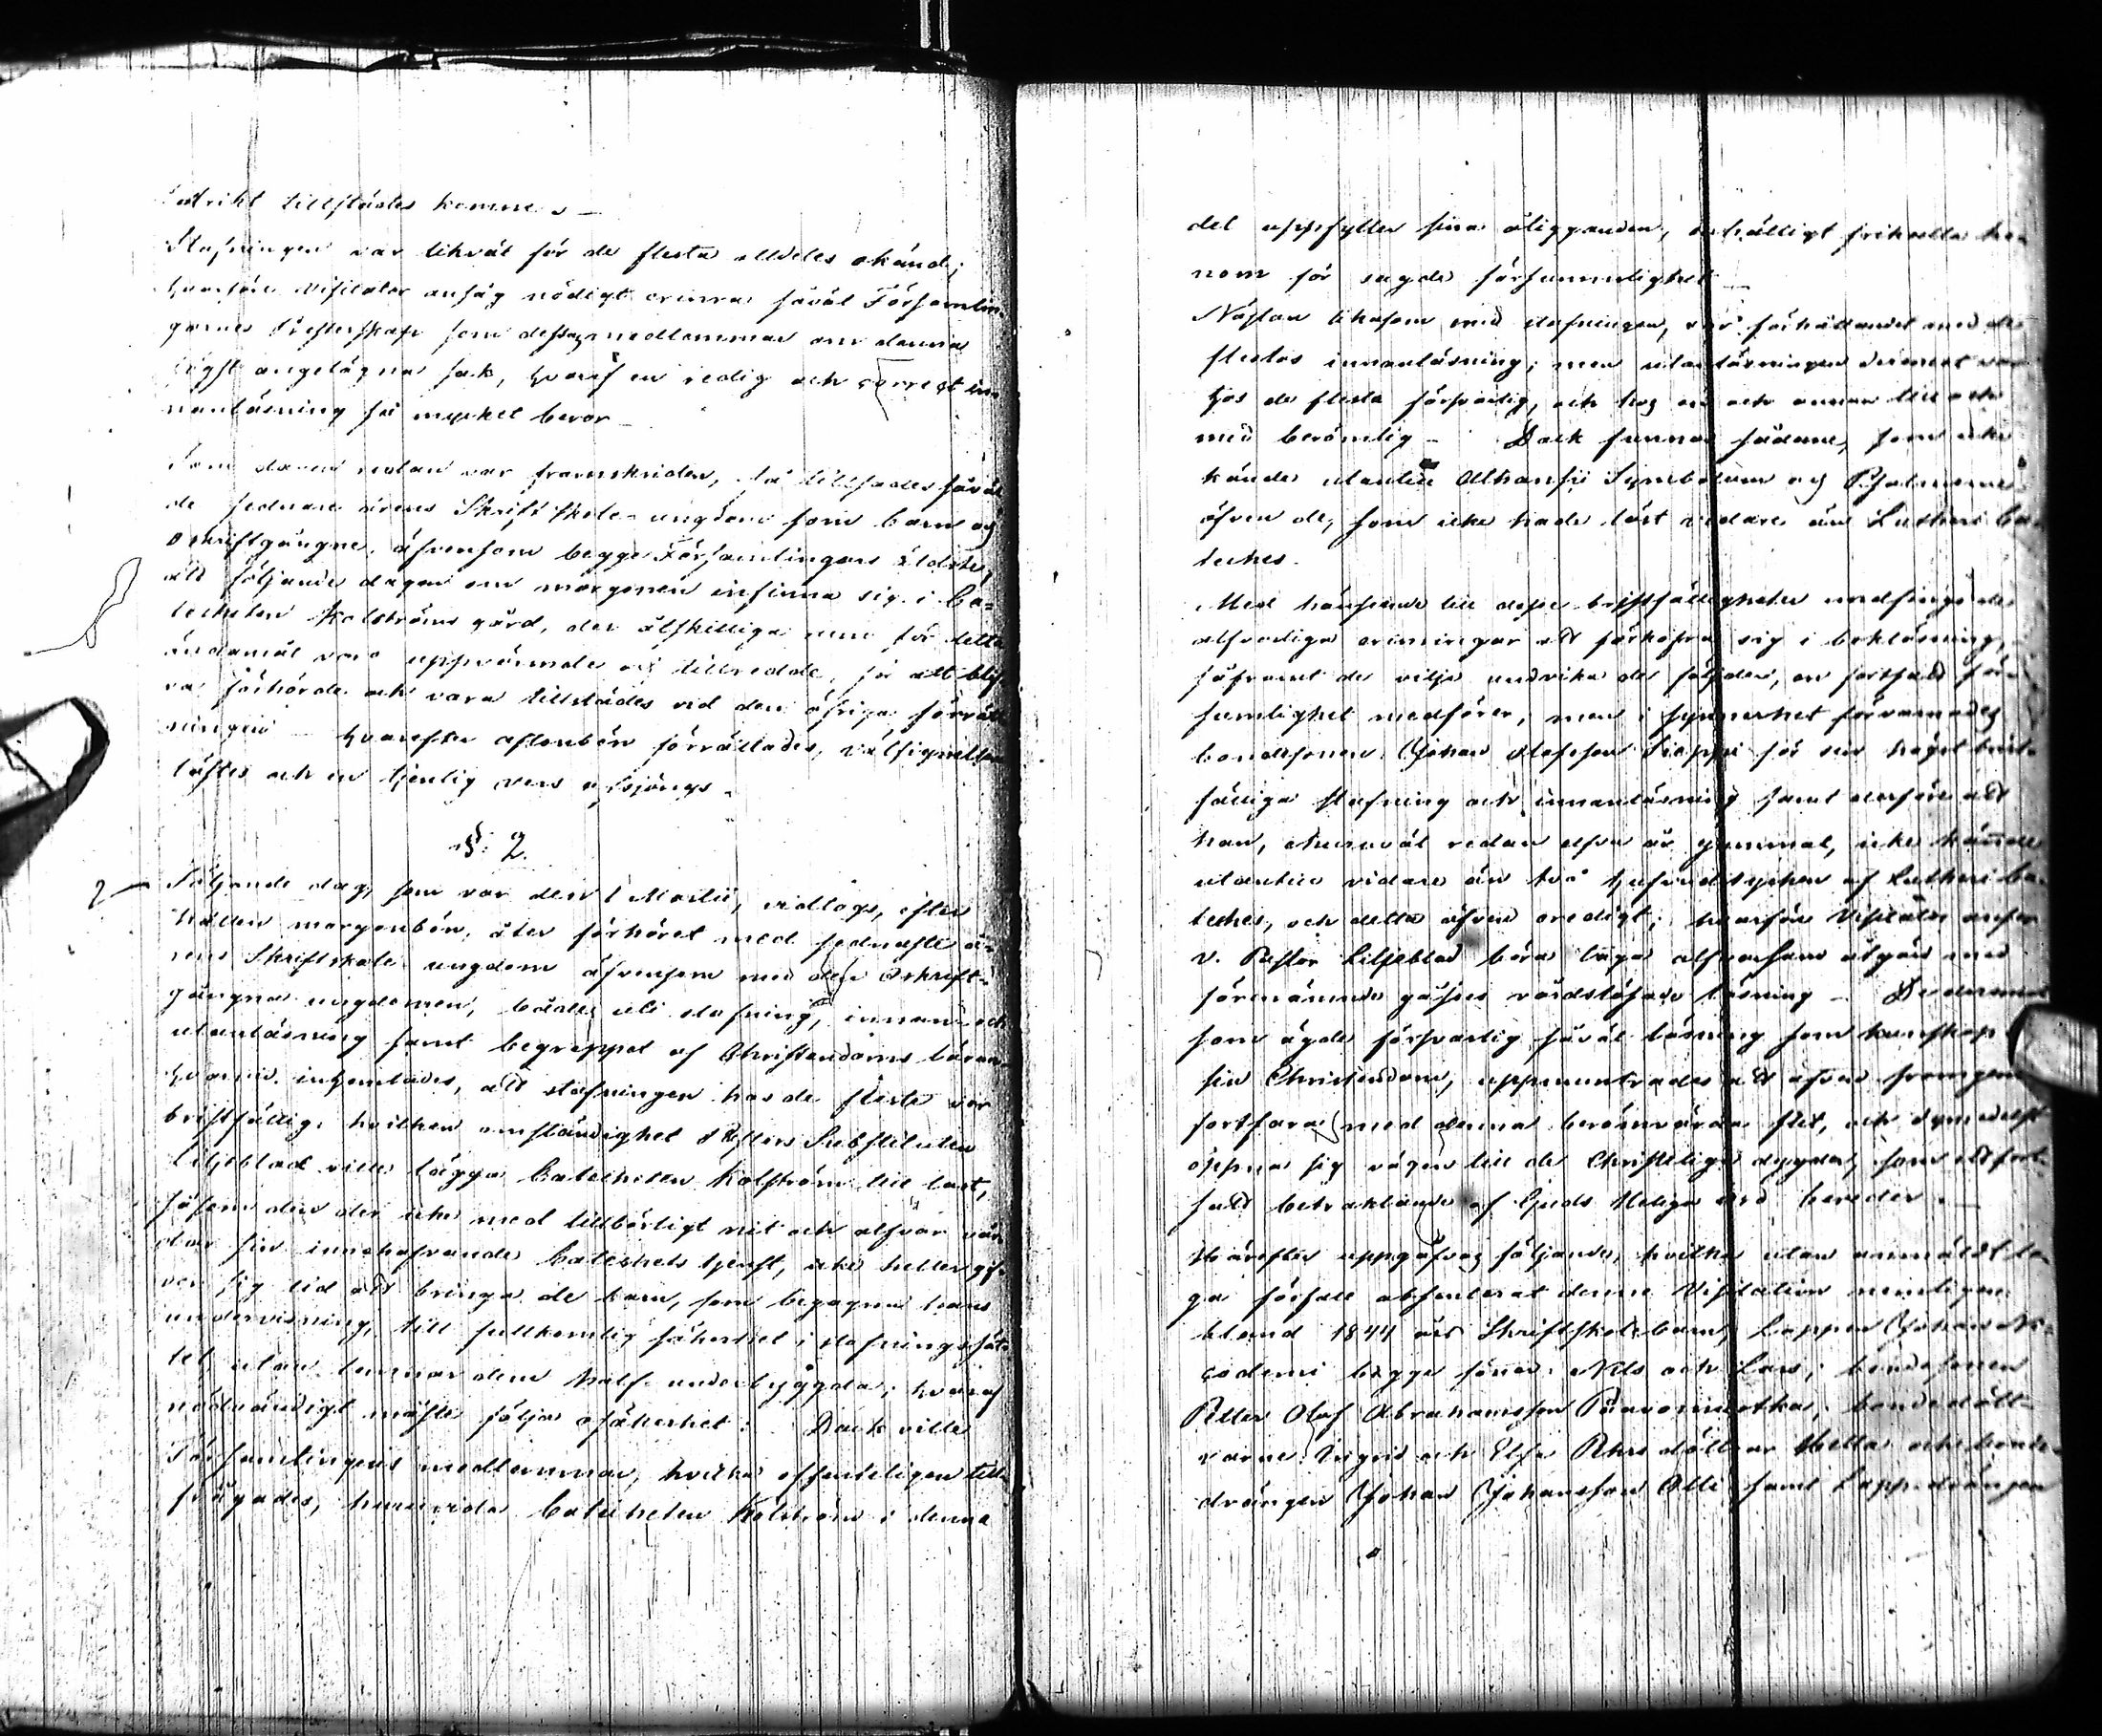 talrikt tillstädes komme. –
Stafningen var likväl för de flesta alldeles okänd;
hvarföre Visitator ansåg nödigt erinra såväl Församlin
garnes Presterskap som dessas medlemmar om denna
högst angelägna sak, hvaraf en redig och correct in
nanläsning så mycket beror –
Som dagen redan var framskriden, så tillsades såväl
de sednare årens Skriftskole-ungdom som barn och
oskriftgångne, äfvensom begge Församlingars äldste,
att följande dagen om morgonen infinna sig i Ca=
techeten Kolströms gård, der åtskilliga rum för detta
ändamål voro uppvärmde och tillredde, för att blif
va förhörde och vara tillstädes vid den öfriga förrätt
ningen – hvarefter aftonbön förrättades, välsignelsen
lästes och en tjenlig vers afsjöngs.
§ 2.
2 – Följande dag, som var den 1 Martii, vidtogs, efter
hållen morgonbön, åter förhöret med sednaste å=
rens Skriftskole ungdom äfvensom med den oskrift=
gångna ungdomen, både uti stafning, innan och
utanläsning samt begreppet af Christendoms läran
hvarvid inhemtades, att stafningen hos de flesta var
bristfällig, hvilken omständighet Pastors Substituten
Liljeblad ville lägga Catecheten Kolström till last,
såsom den der icke med tillbörligt nit och alfvar vår
dar sin innehafvande Catechets tjenst, icke heller gif
ver sig tid att bringa de barn, som begagna hans
undervisning, till fullkomlig säkerhet i stafningssät
tet utan lemnar dem half underbyggda; hvaraf
nödvändigt måste följa osäkerhet: Dock ville
Församlingens medlemmar, hvilka offenteligen till
frågades, huruvida Catecheten Kolström i denna
del uppfyller sina åligganden, enhälligt frikalla ho
nom för sagde försummelighet –
Nästan likasom med stafningen, var förhållandet med de
flestas innanläsning; men utanläsningen deremot var
hos de flesta försvarlig, och hos en och annan till och
med berömlig – Dock funnos sådane, som icke
kände utantill Athanasii Symbolum och Psalmerne
äfven de, som icke hade läst vidare än Lutheri Ca=
teches.
Med hänseende till desse bristfälligheter undfingo de
alfvarliga erinringar att förkofra sig i bokläsning,
såframt de vilja undvika de följder, en fortsatt för
sumlighet medförer, men i synnerhet förvarnades
bondesonen Johan Olofsson för sin högst brist=
fälliga stafning och innanläsning samt derföre att
han, ehuruväl redan elfva år gammal, icke kände
utantill vidare än två hufvudstycken af Lutheri Ca
teches, och detta äfven oredigt; hvarföre Visitator anser
v. Pastor Liljeblad böra taga alfvarsam åtgärd med
förenämnde gosses vårdslösade läsning – De deremot
som ägde försvarlig såväl läsning som kunskap i
sin Christendom, uppmuntrades att äfven framgent
fortfara med denna berömvärda flit, och dymedelst
öppna sig vägen till de Christeliga dygder, som ett fort
satt betraktande af Guds Heliga ord bereder. –
Härefter uppgåfvos följande, hvilka utan anmäldt la
ga förfall absenterat denne Visitation nemligen
bland 1844 års Skriftskolebarn, Lappen Johan Ni=
codemi begge söner: Nils och Lars; bondesonen
Petter Olof Abrahamsson Paavoniemi; bondedött
rarne Ingrid och Elsa Pehrs döttrar Hetta och bonde
drängen Johan Johansson Olli samt Lappdrängen